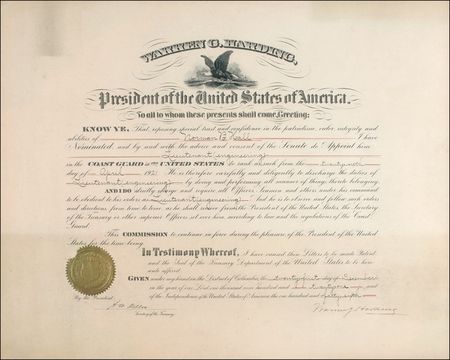 WARREN G. HARDING,
President of the United States of America.
To all to whom these presents shall come, Greeting:
KNOW YE, That reposing special trust and confidence in the patriotism, valor, integrity and
abilities of Norman B. Hall I have
Nominated, and by and with the advice and consent of the Senate do Appoint him
Lieutenant (engineering)
in the COAST GUARD of the UNITED STATES to rank as such from the
day of April 1921. He is therefore carefully and diligently to discharge the duties of
Lieutenant (engineering) by doing and performing all manner of things thereto belonging;
AND I DO strictly charge and require all Officers Seamen and others under his command
to be obedient to his orders as Lieutenant (engineering). And he is to observe and follow such orders
and directions, from time to time, as he shall receive from the President of the United States, the Secretary
of the Treasury or other superior Officers set over him, according to law and the regulations of the Coast
Guard.
This COMMISSION to continue in force during the pleasure of the President of the United
States for the time being.
In Testimony Whereof, I have caused these Letters to be made Patent
and the Seal of the Treasury Department of the United States to be
hereunto affixed.
GIVEN under my hand in the District of Columbia, the twenty first day of December
in the year of our Lord one thousand nine hundred and twenty one and
of the Independence of the United States of America the one hundred and forty sixth
By the President
Warren G Harding
A W Mellon
Secretary of the Treasury